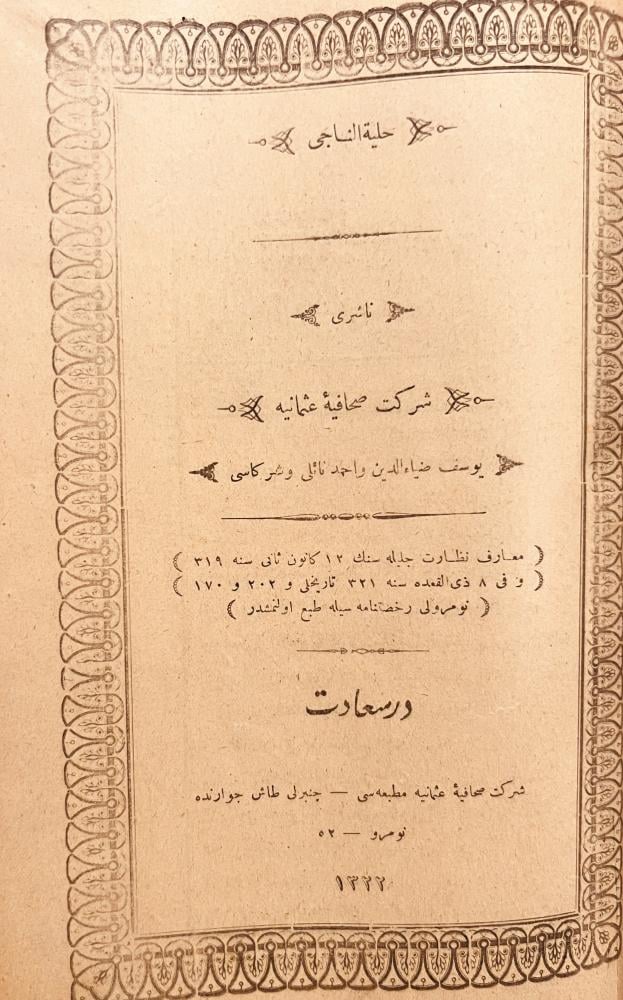 حلية الناجى
ناشرى
شركت صحافيۀ عثمانيه
يوسف ضياءالدين واحمد نائلى وشركاسى
( معارف نظارت جليله سنك ١٢ كانون ثانى سنه ٣١٩ )
( و فى ٨ ذى القعده سنه ٣٢١ تاريخلى و ٢٠٢ و ١٧٠ )
( نومرولى رخصتنامه سيله طبع اولنمشدر )
درسعادت
شركت صحافيۀ عثمانيه مطبعه سى — چنبرلى طاش جوارنده
نومرو — ٥٢
١٣٢٢